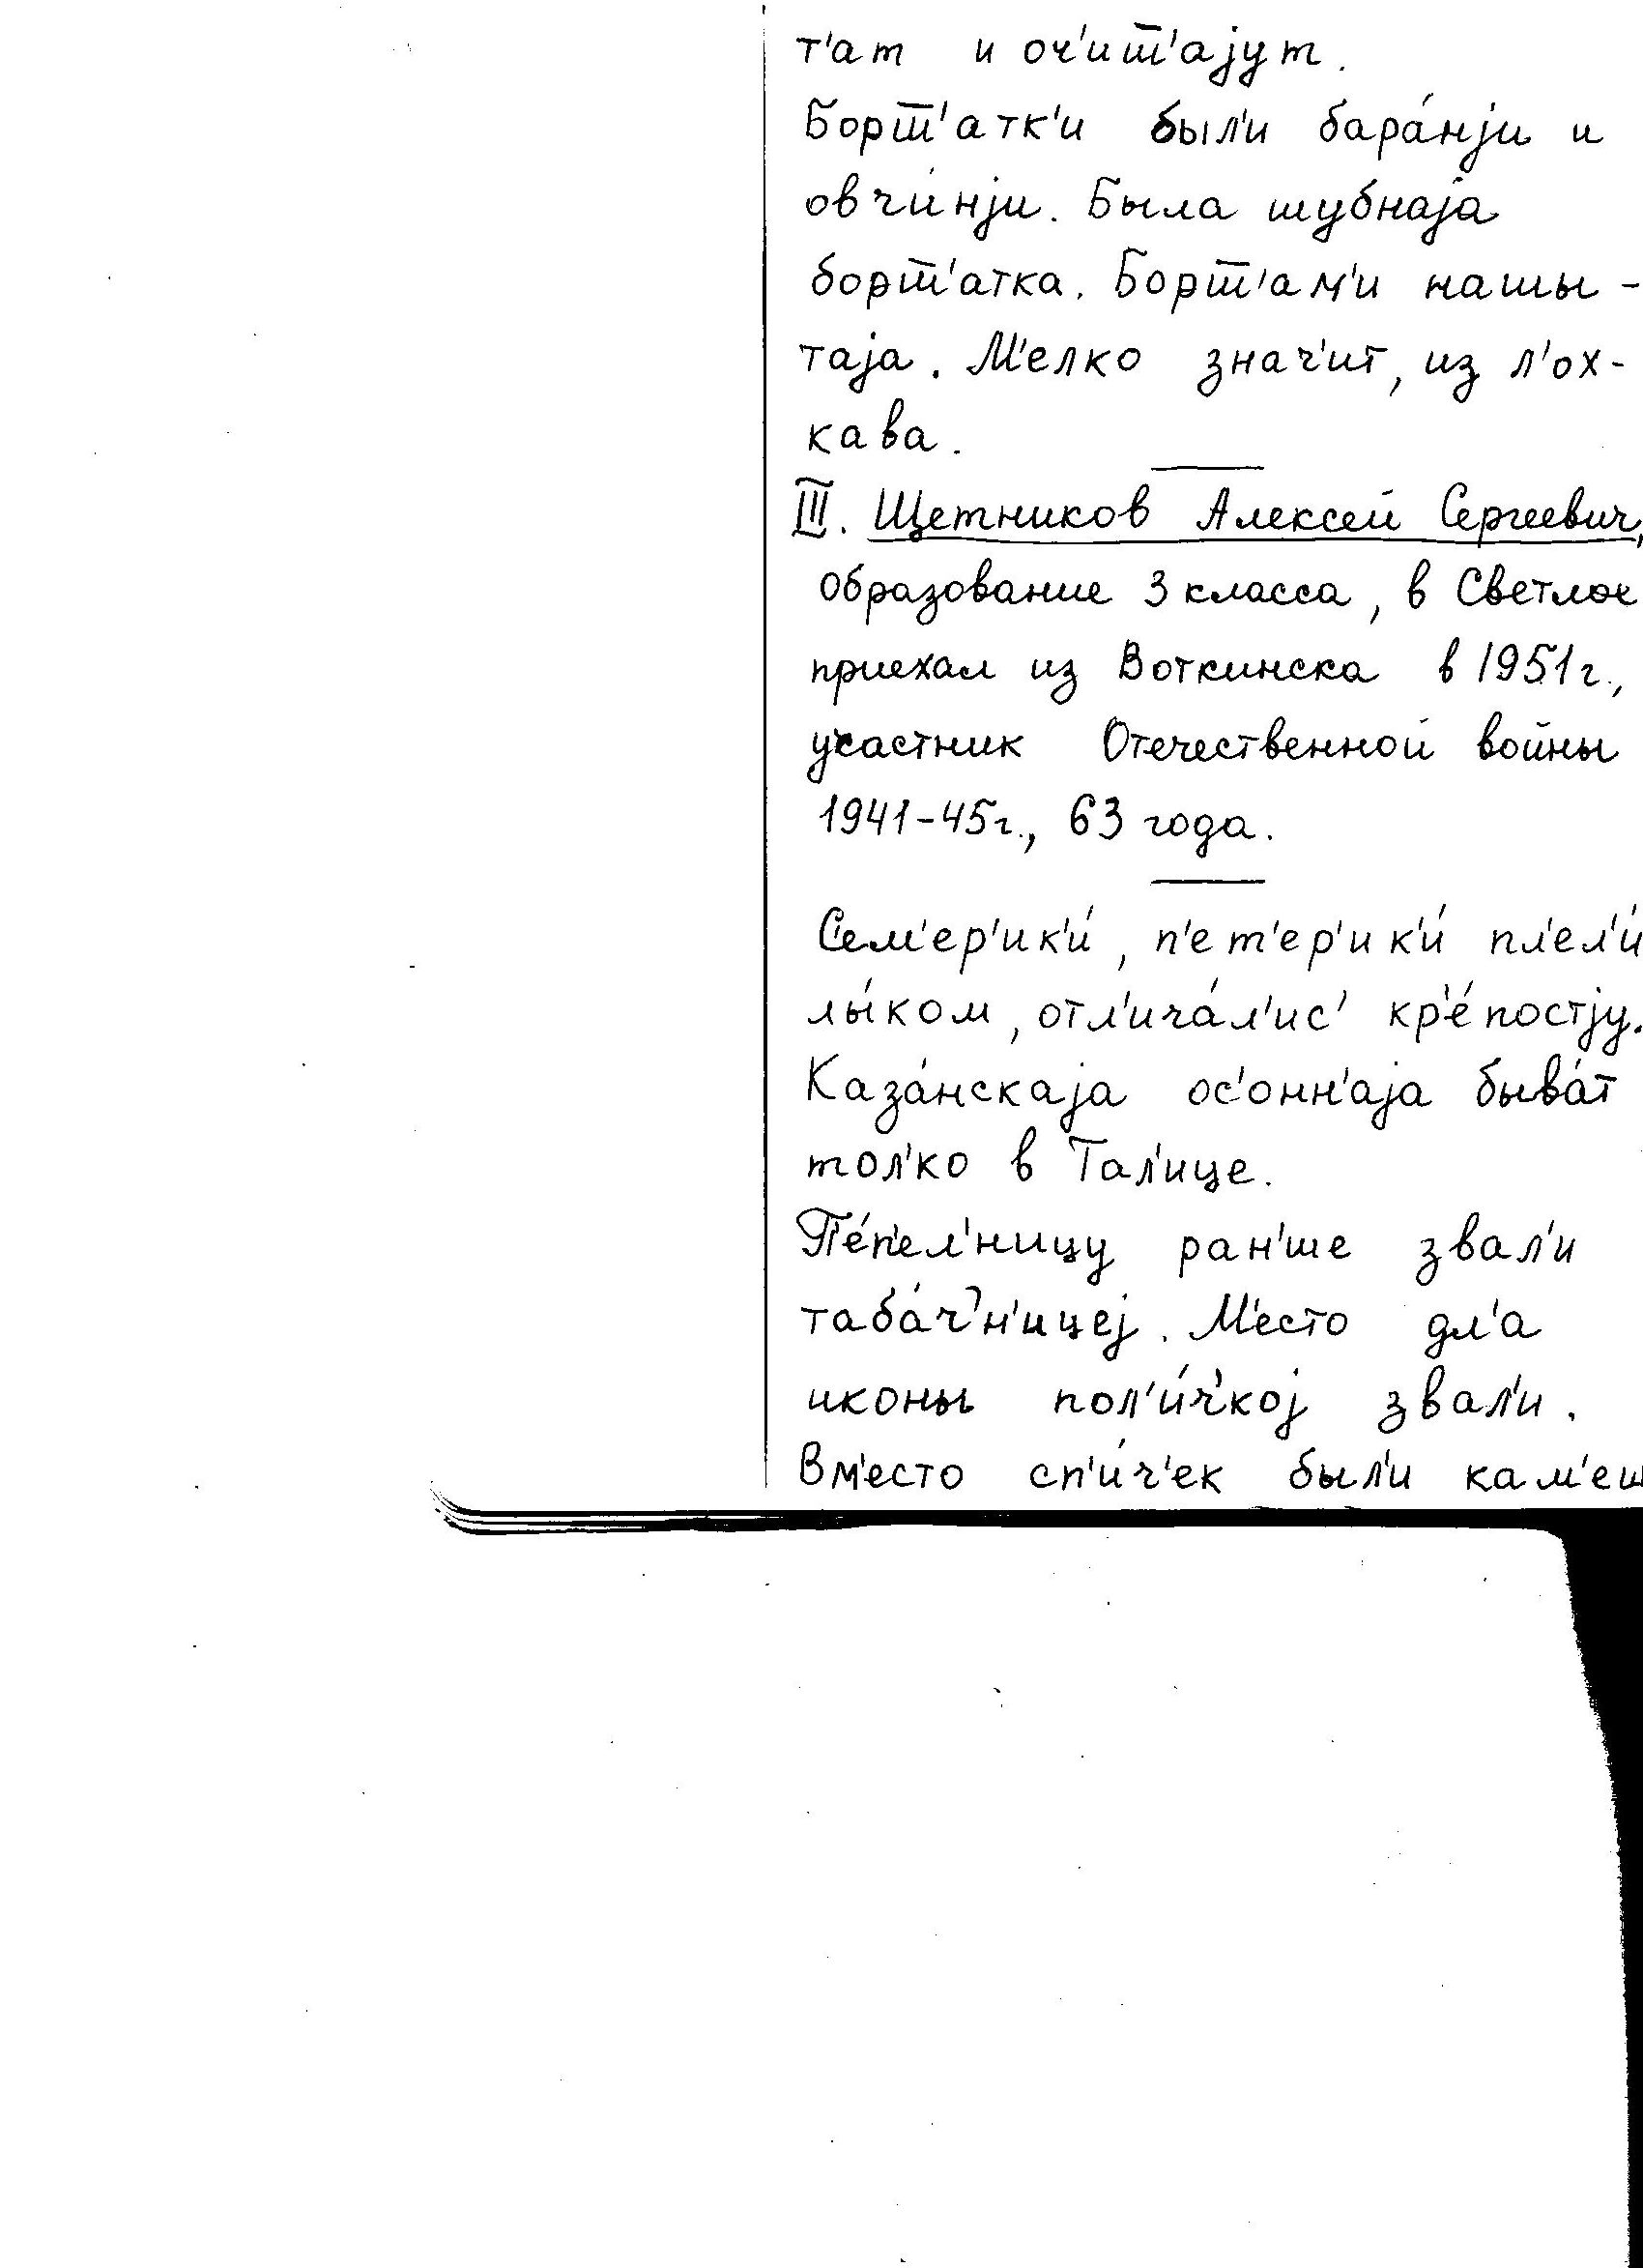 т'ат и оч'иш̅'ајут.
Борш̅'атк'и был'и бара́нји и
овчи́нји. Была шубнаја
борш̅'атка. Борш̅'ам'и нашы-
таја. М'елко знач'ит, из л'ох-
кава.
III. Щетников Алексей Сергеевич,
образование 3 класса, в Светлое
приехал из Воткинска в 1951г.,
участник Отечественной войны
1941-45г., 63 года.
С'ем'ер'ик'и́, п'ет'ер'ик'и́ пл'ел'и́
лы́ком, отл'ича́л'ис' кр'е́постју.
Каза́нскаја ос'онн'аја быва́т
тол'ко в Тал'ице.
П'е́п'ел'ницу ран'ше звал'и
таба́ч'н'ицеј. М'есто дл'а
иконы пол'и́ч'кој звал'и.
Вм'есто сп'и́ч'ек был'и кам'еш